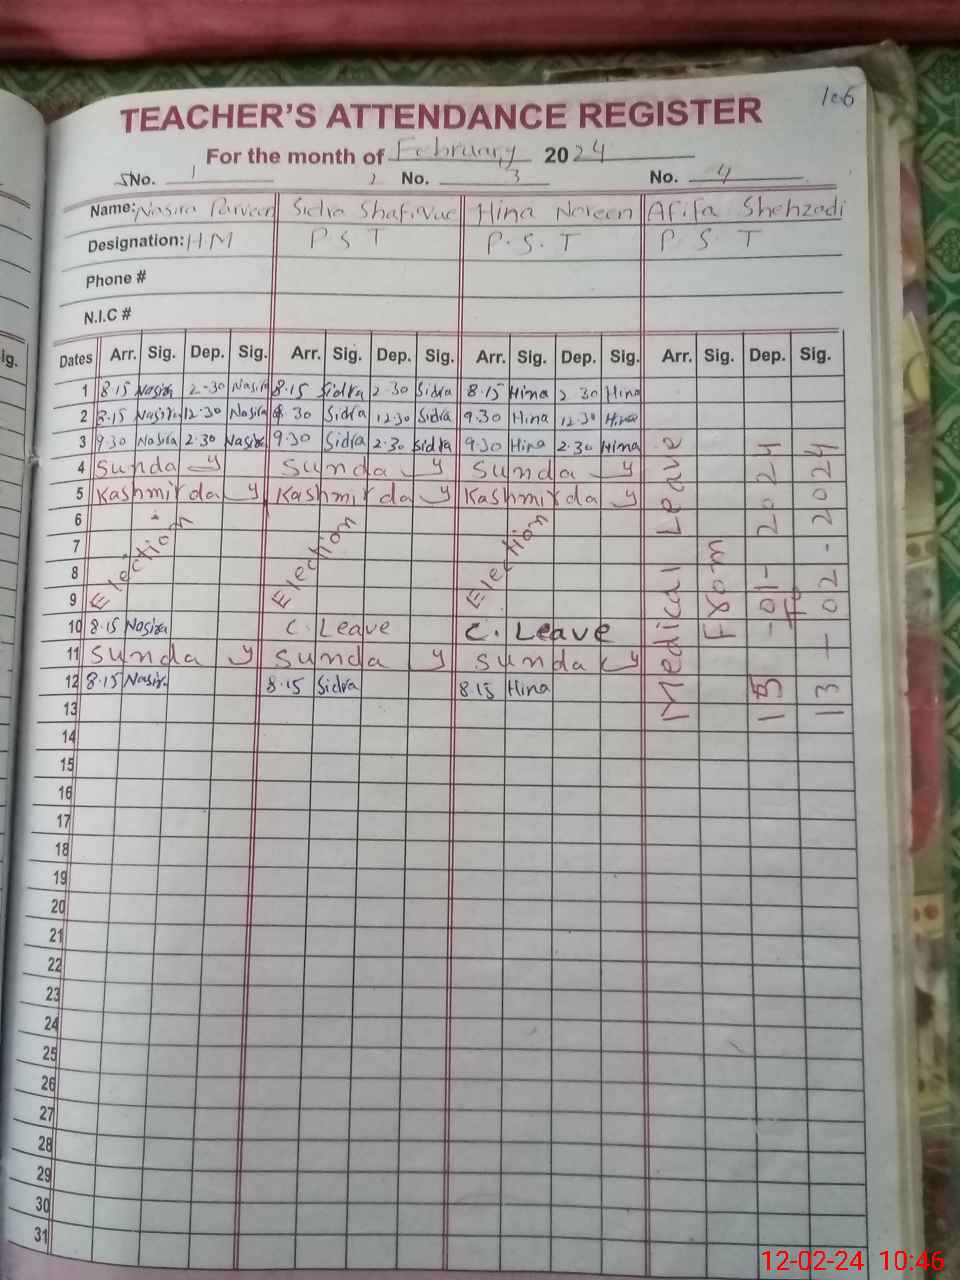 106
TEACHER'S ATTENDANCE REGISTER
For the month of February 2024
SNo. 1 2 No. 3 No. 4
Name: Nasira Parveen Sidra Shafique Hina Noreen Afifa Shehzadi
Designation: H.M P S T P.S.T P S T
Phone #
N.I.C #
ig.
Dates Arr. Sig. Dep. Sig. Arr. Sig. Dep. Sig. Arr. Sig. Dep. Sig. Arr. Sig. Dep. Sig.
1 8.15 Nasira 2-30 Nasira 8.15 Sidra 2-30 Sidra 8.15 Hina 2 30 Hina
2 8.15 Nasira 12.30 Nasira 30 Sidra 12.30 Sidra 9.30 Hina 12.30 Hina
3 9.30 Nasira 2.30 Nasira 9.30 Sidra 2.30 Sidra 9.30 Hina 2.30 Hina
4 Sunda y Sunda y Sunda y
5 Kashmir da y Kashmir da y Kashmir da y
6
7
8
9
Election Election Election
10 8.15 Nasira C. Leave C. Leave
11 Sunda y Sunda y Sunda y
12 8.15 Nasira 8.15 Sidra 8.15 Hina
Medical Leave
From
15-01-2024
To
13-02-2024
13
14
15
16
17
18
19
20
21
22
23
24
25
26
27
28
29
30
31
12-02-24 10:46